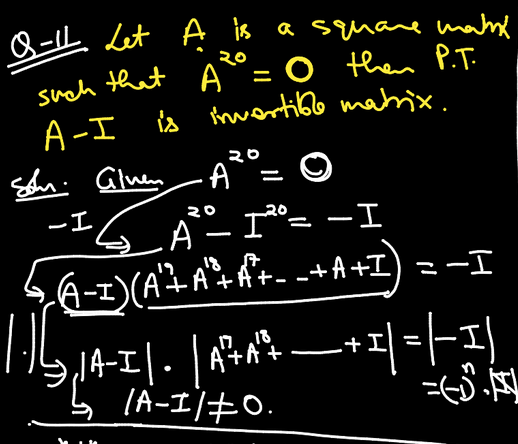 Q-11 Let A is a square matrix
such that A²⁰ = O then P.T.
A-I is invertible matrix.
Soln. Given A²⁰ = O
-I ⇒ A²⁰ - I²⁰ = -I
(A-I)(A¹⁹+A¹⁸+A¹⁷+---+A+I) = -I
|.| ⇒ |A-I| · |A¹⁷+A¹⁸+——+I| = |-I|
=(-1)ⁿ.|I|
↳ |A-I| ≠ 0.